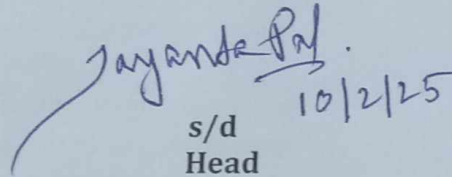 Jayanta Pal.
10/2/25
s/d
Head